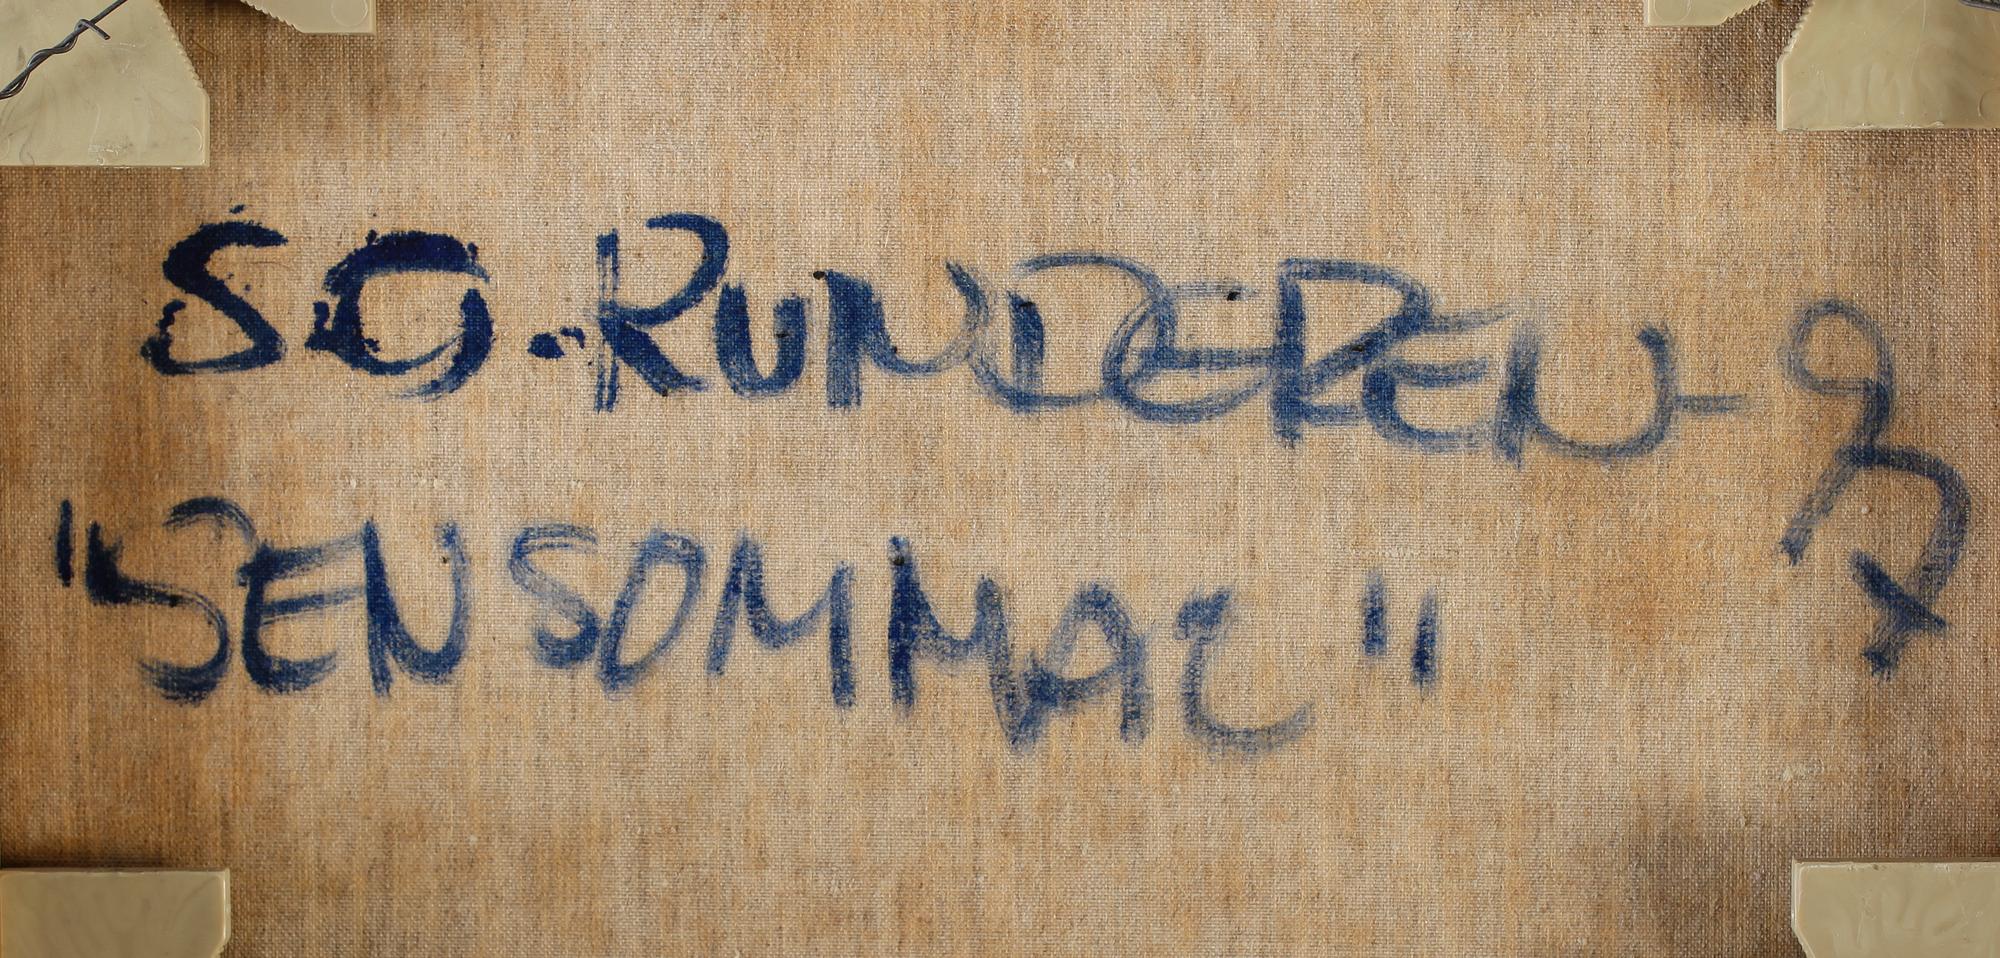 SO. RUNDEREN - 97
"SENSOMMAR"